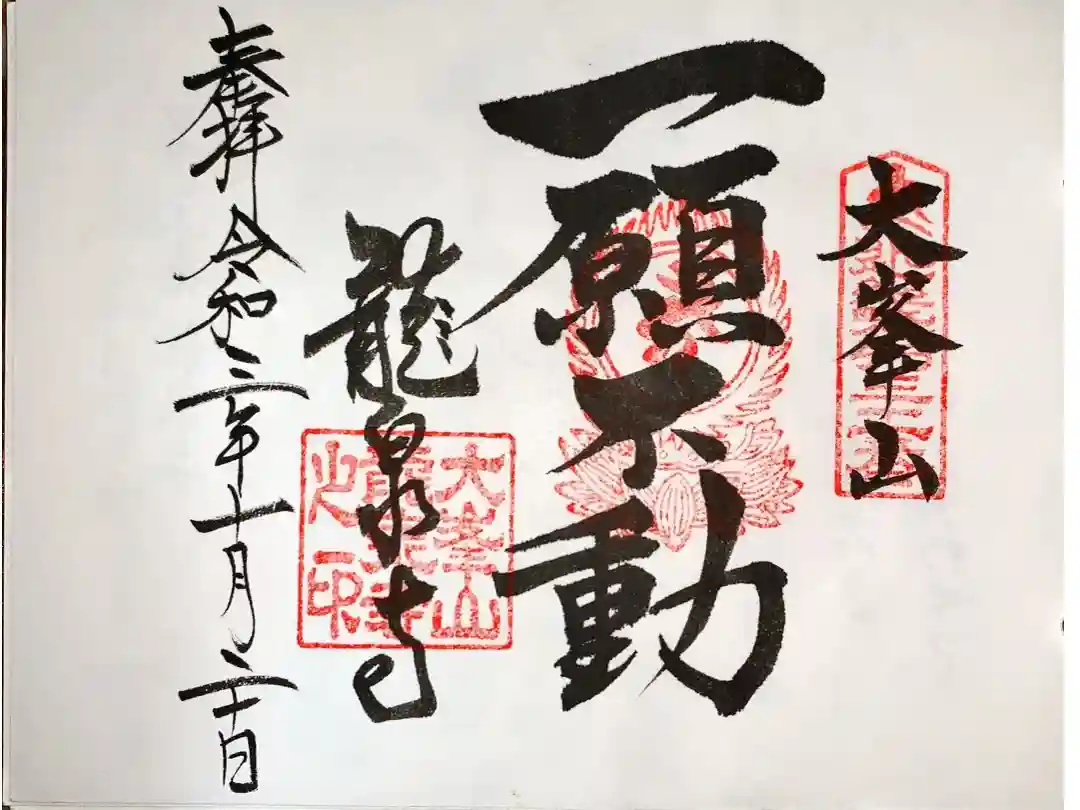 大峯山
一願不動
龍泉寺
奉拝 令和三年十月二十日
大峯山
龍泉寺
之印